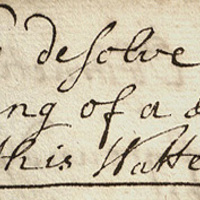 desolve
ng of a
this Watte